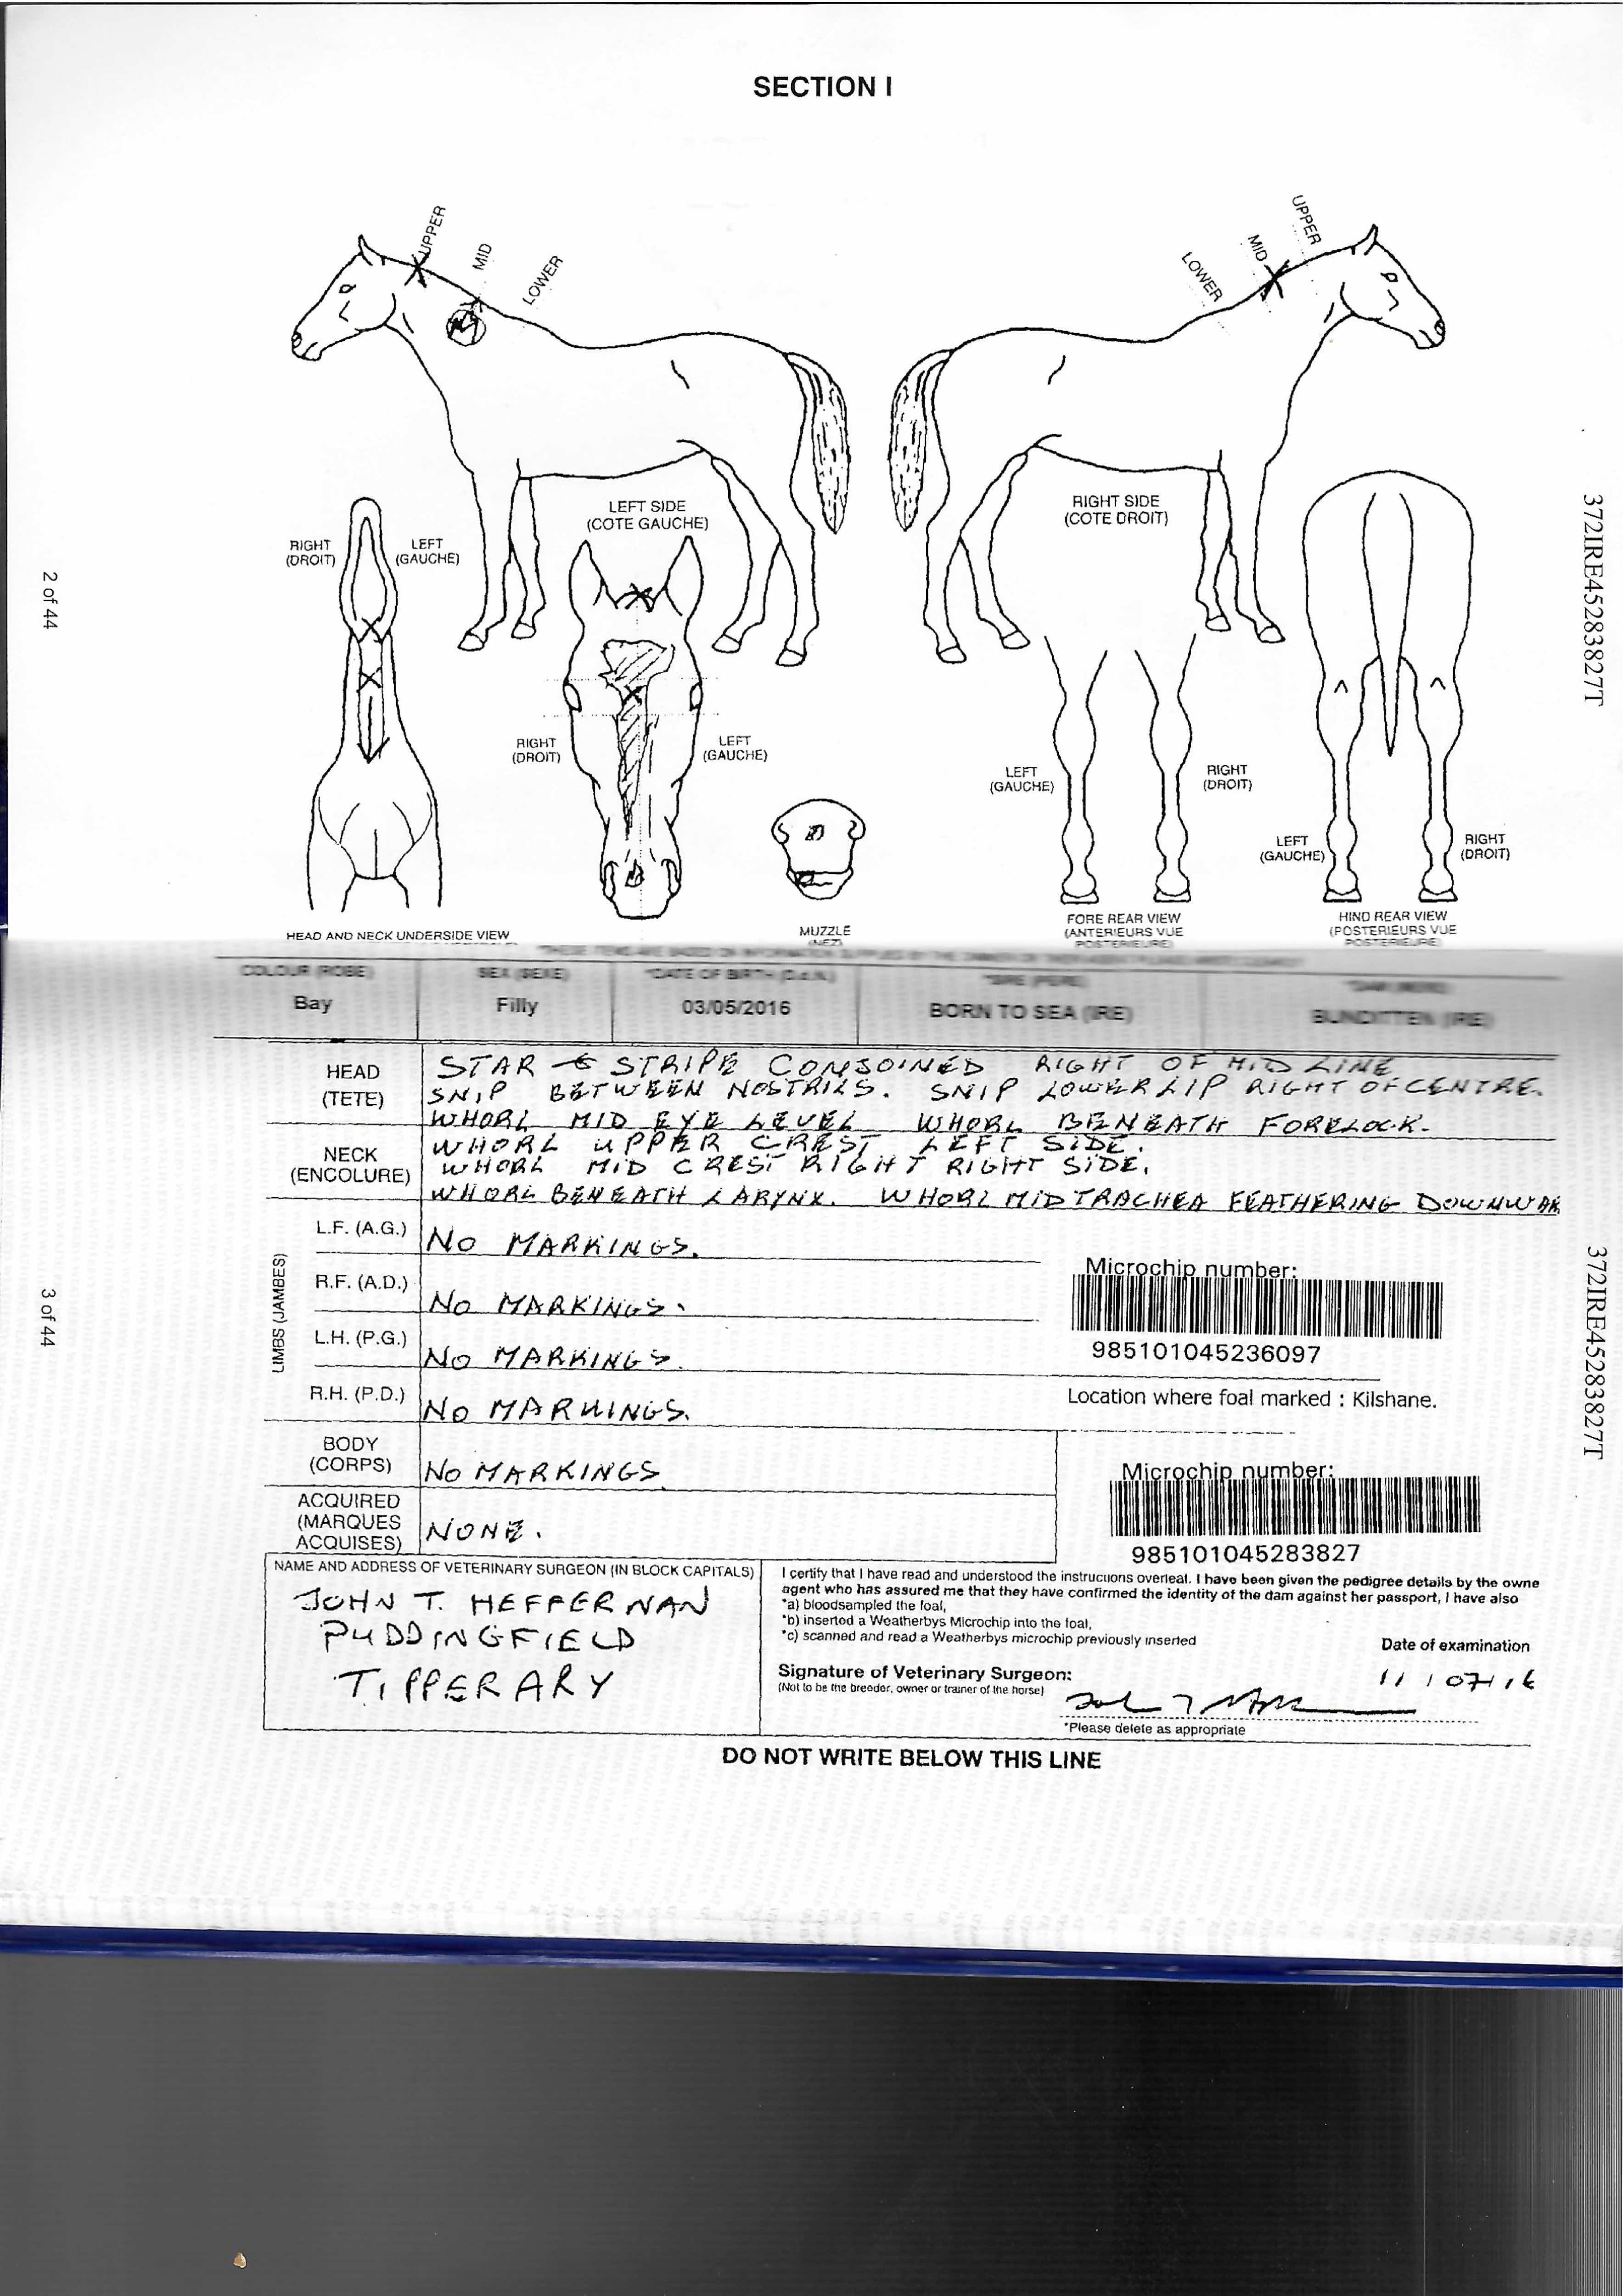 SECTION I
UPPER
MID
LOWER
LOWER
MID
UPPER
LEFT SIDE
(COTE GAUCHE)
RIGHT SIDE
(COTE DROIT)
RIGHT
(DROIT)
LEFT
(GAUCHE)
RIGHT
(DROIT)
LEFT
(GAUCHE)
LEFT
(GAUCHE)
RIGHT
(DROIT)
LEFT
(GAUCHE)
RIGHT
(DROIT)
HEAD AND NECK UNDERSIDE VIEW
MUZZLE
(NEZ)
FORE REAR VIEW
(ANTERIEURS VUE
POSTERIEURE)
HIND REAR VIEW
(POSTERIEURS VUE
POSTERIEURE)
2 of 44
372IRE45283827T
COLOUR (ROBE) SEX (SEXE) *DATE OF BIRTH (D.d.N.) *SIRE (PERE) *DAM (MERE)
Bay Filly 03/05/2016 BORN TO SEA (IRE) BUNDITTEN (IRE)
HEAD
(TETE)
STAR & STRIPE CONJOINED RIGHT OF MID LINE
SNIP BETWEEN NOSTRILS. SNIP LOWER LIP RIGHT OF CENTRE.
WHORL MID EYE LEVEL WHORL BENEATH FORELOCK.
NECK
(ENCOLURE)
WHORL UPPER CREST LEFT SIDE.
WHORL MID CREST RIGHT RIGHT SIDE.
WHORL BENEATH LARYNX. WHORL MID TRACHEA FEATHERING DOWNWAR
LIMBS (JAMBES)
L.F. (A.G.) NO MARKINGS.
R.F. (A.D.) NO MARKINGS.
L.H. (P.G.) NO MARKINGS.
R.H. (P.D.) NO MARKINGS.
Microchip number:
985101045236097
Location where foal marked : Kilshane.
BODY
(CORPS)
NO MARKINGS
ACQUIRED
(MARQUES
ACQUISES)
NONE.
Microchip number:
985101045283827
3 of 44
372IRE45283827T
NAME AND ADDRESS OF VETERINARY SURGEON (IN BLOCK CAPITALS)
JOHN T. HEFFERNAN
PUDDINGFIELD
TIPPERARY
I certify that I have read and understood the instructions overleaf. I have been given the pedigree details by the owne
agent who has assured me that they have confirmed the identity of the dam against her passport, I have also
*a) bloodsampled the foal,
*b) inserted a Weatherbys Microchip into the foal,
*c) scanned and read a Weatherbys microchip previously inserted
Date of examination
11/07/16
Signature of Veterinary Surgeon:
(Not to be the breeder, owner or trainer of the horse)
*Please delete as appropriate
DO NOT WRITE BELOW THIS LINE